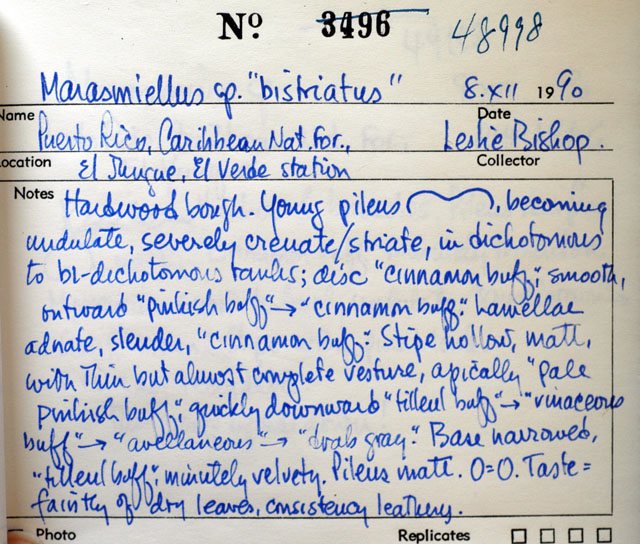 No. 3496 48998
Marasmiellus sp. "bistriatus" 8.XII 1990
Name Date
Puerto Rico, Caribbean Nat. For., Leslie Bishop.
Location Collector
El Yunque, El Verde station
Notes Hardwood bough. Young pileus , becoming
undulate, severely crenate/striate, in dichotomous
to bi-dichotomous ranks; disc "cinnamon buff," smooth,
outward "pinkish buff" → "cinnamon buff." Lamellae
adnate, slender, "cinnamon buff." Stipe hollow, matt,
with thin but almost complete vesture, apically "pale
pinkish buff," quickly downward "tilleul buff" → "vinaceous
buff" → "avellaneous" → "drab gray." Base narrowed,
"tilleul buff," minutely velvety. Pileus matt. O=O. Taste =
faintly of dry leaves, consistency leathery.
Photo Replicates